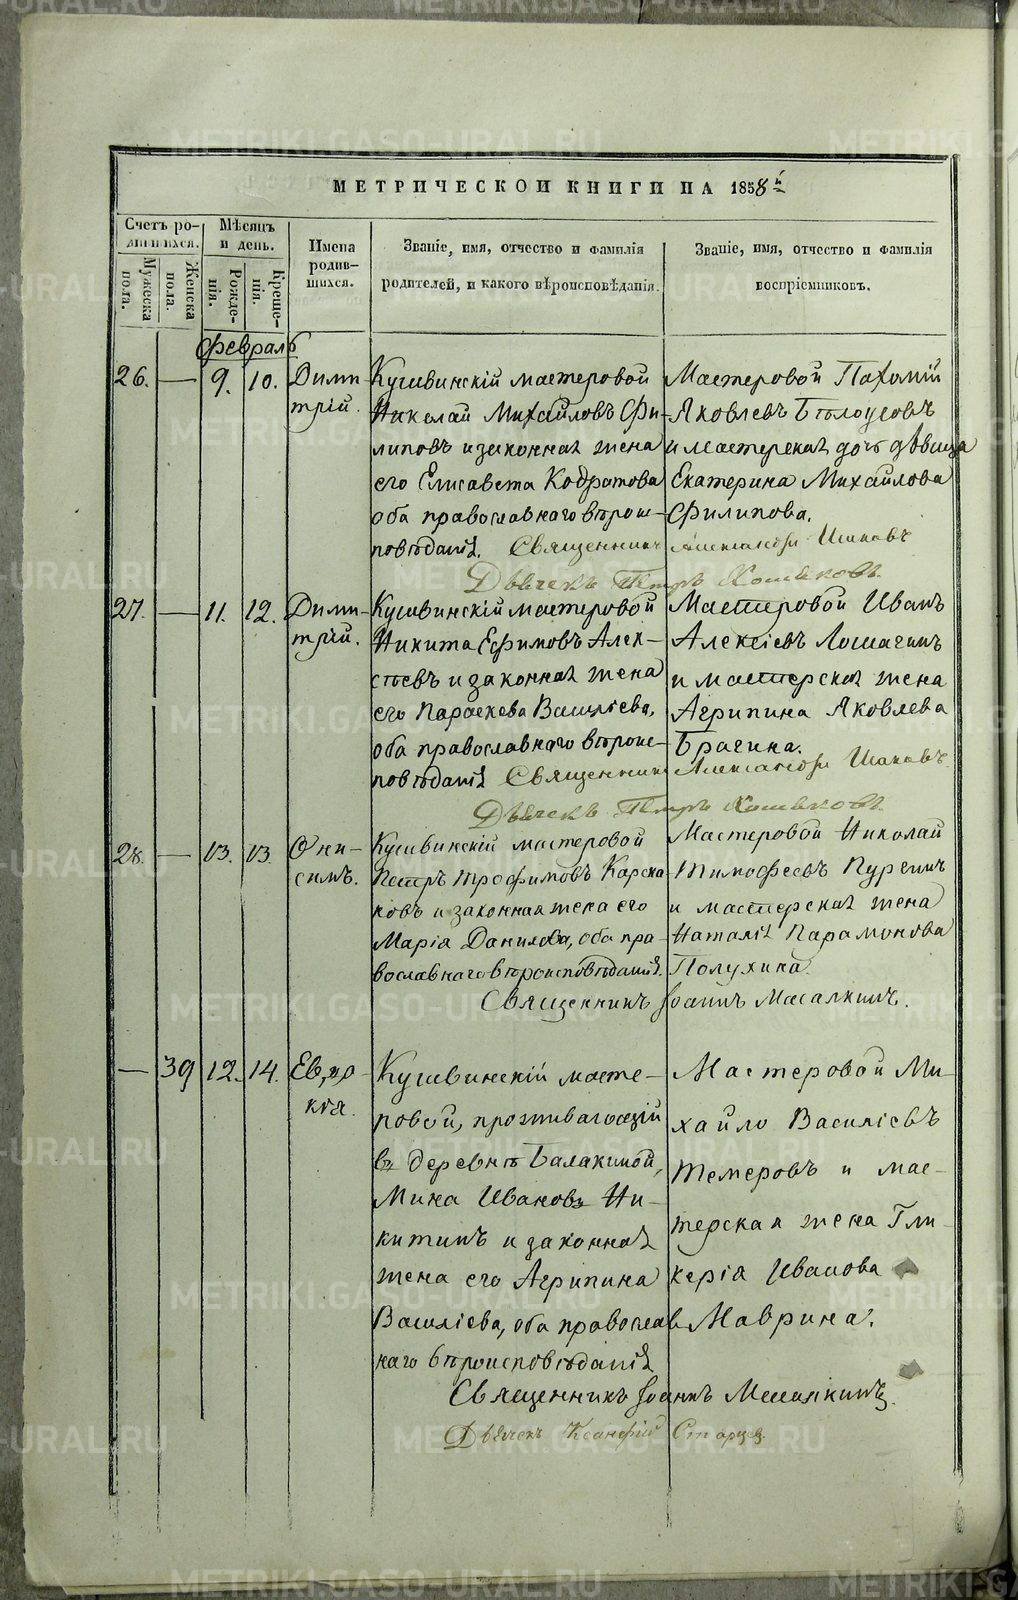 METRIKI.GASO-URAL.RU
МЕТРИЧЕСКОЙ КНИГИ НА 1858й
Счетъ родившихся.
Мужеска пола.
Женска пола.
Мѣсяцъ и день.
Рожденія.
Крещенія.
Имена родившихся.
Званіе, имя, отчество и фамилія
родителей, и какого вѣроисповѣданія.
Званіе, имя, отчество и фамилія
воспріемниковъ.
Февраль
26. — 9. 10. Дими-
трій.
Кушвинскій мастеровой
Николай Михайловъ Фи-
липовъ и законная жена
его Елисавета Кодратова
оба православнаго вѣроис-
повѣданія.
Мастеровой Пахомій
Яковлевъ Бѣлоусовъ
и мастерская дочь дѣвица
Екатерина Михайлова
Филипова.
Священникъ Александръ
Дьячекъ Петръ Хомяковъ.
27. — 11. 12. Дими-
трій.
Кушвинскій мастеровой
Никита Ефимовъ Алек-
сѣевъ и законная жена
его Параскева Василіева,
оба православнаго вѣроис-
повѣданія
Мастеровой Иванъ
Алексіевъ Лошагинъ
и мастерская жена
Агрипина Яковлева
Брагина.
Священникъ Александръ
Дьячекъ Петръ Хомяковъ.
28. — 13. 13. Они-
симъ.
Кушвинскій мастеровой
Петръ Трофимовъ Карса
ковъ и законная жена его
Марія Данилова, оба пра-
вославнаго вѣроисповѣданія.
Мастеровой Николай
Тимофеевъ Пургинъ
и мастерская жена
Наталія Парамонова
Полухина.
Священникъ Іоаннъ Масалкинъ.
— 39 12. 14. Евдо-
кія.
Кушвинскій масте-
ровой, проживающій
въ деревнѣ Балакиной,
Мина Ивановъ Ни-
китинъ и законная
жена его Агрипина
Василіева, оба православ
наго вѣроисповѣданія
Мастеровой Ми-
хайло Василіевъ
Темеровъ и мас-
терская жена Гли-
керія Иванова
Маврина.
Священникъ Іоаннъ Масалкинъ.
Дьячекъ Ксанфій Старцев.